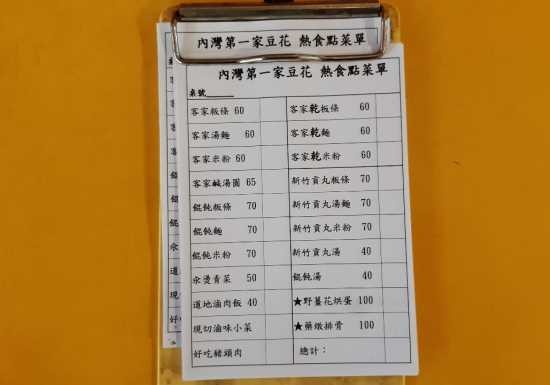 內灣第一家豆花 熱食點菜單
內灣第一家豆花 熱食點菜單
桌號
客家粄條 60 客家乾板條 60
客家湯麵 60 客家乾麵 60
客家米粉 60 客家乾米粉 60
客家鹹湯圓 65 新竹貢丸粄條 70
餛飩粄條 70 新竹貢丸湯麵 70
餛飩麵 70 新竹貢丸米粉 70
餛飩米粉 70 新竹貢丸湯 40
汆燙青菜 50 餛飩湯 40
道地滷肉飯 40 ★野薑花烘蛋 100
現切滷味小菜 ★藥燉排骨 100
好吃豬頭肉 總計：
客
客
客
客
餛
餛
餛
汆
道
現
好